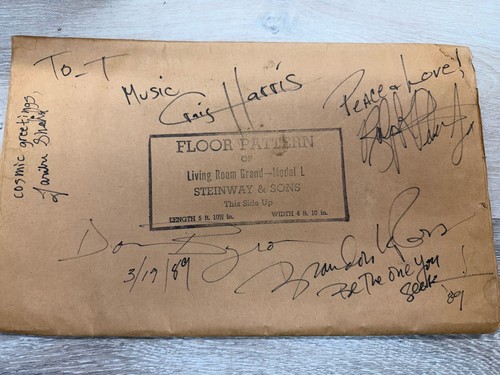 To - T
Music
Craig Harris
Peace & Love!
cosmic greetings,
FLOOR PATTERN
OF
Living Room Grand—Model L
STEINWAY & SONS
This Side Up
LENGTH 5 ft. 10½ in. WIDTH 4 ft. 10 in.
Don Byron
3/19/89
Brandon Ross
Be The one you
Seek!
'89